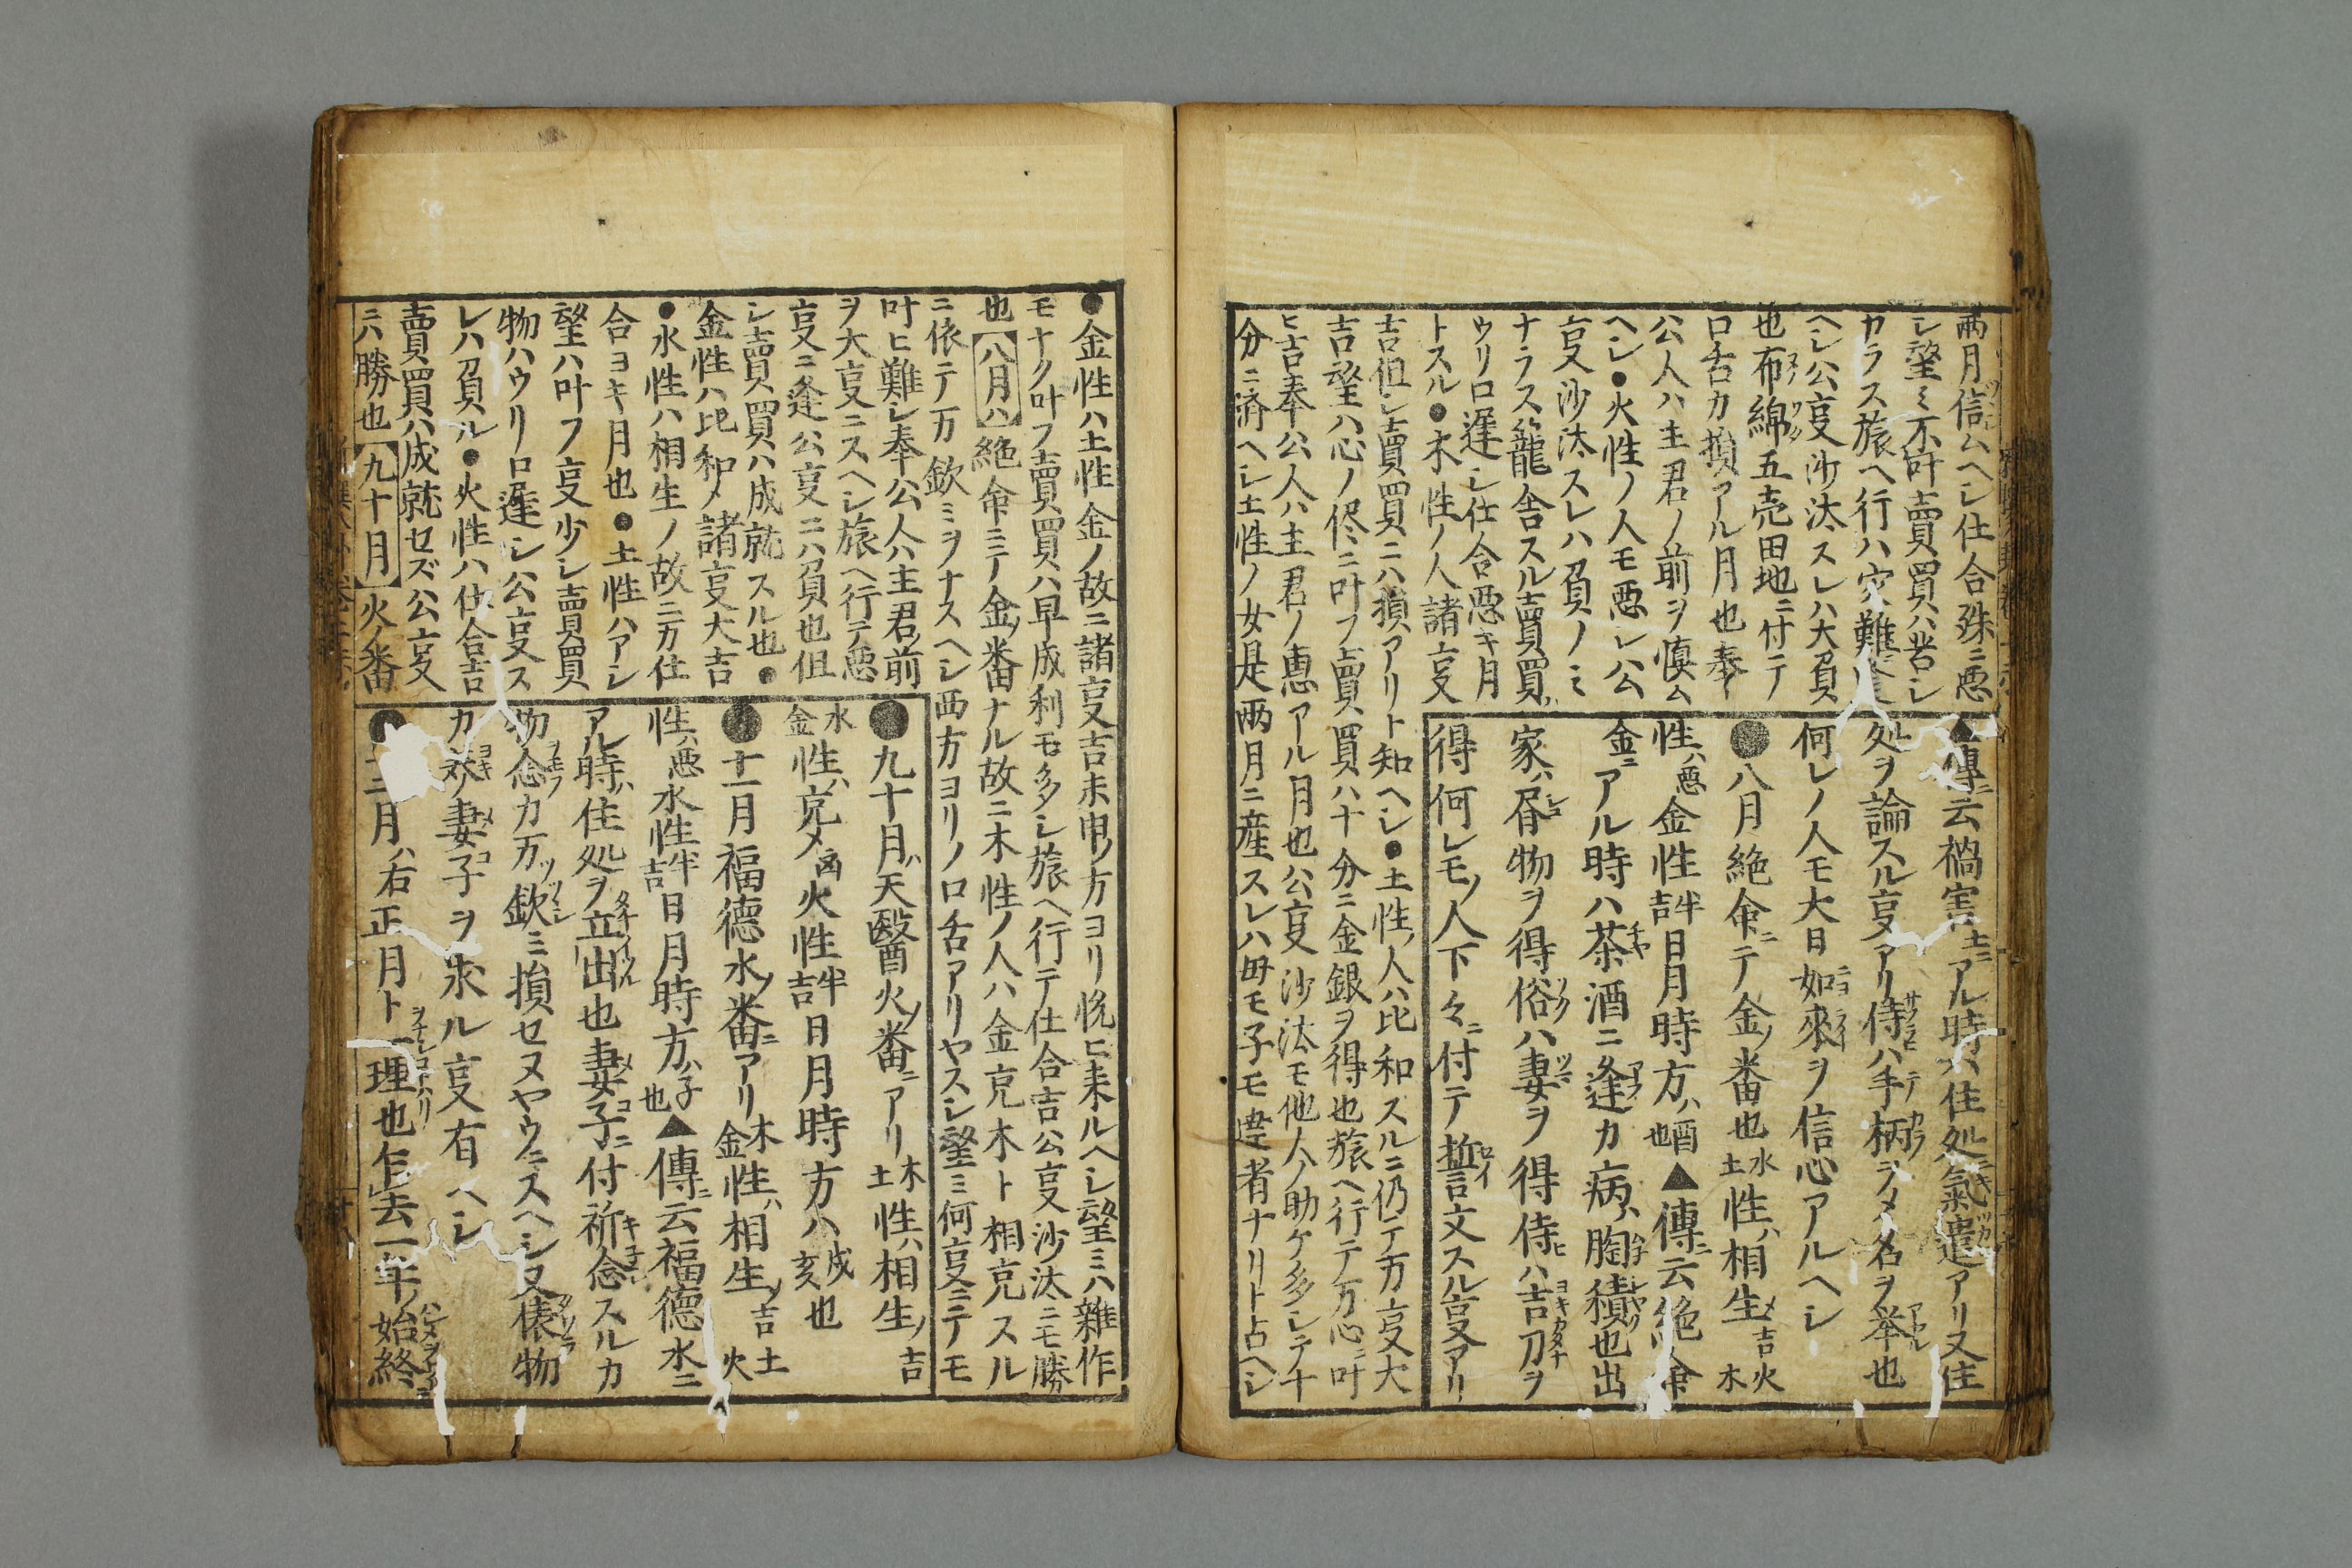 兩月信ムヘシ仕合殊ニ悪
シ望ミ不叶賣買ハ若シ
カラス旅ヘ行ハ災難逢
ヘシ公叓沙汰スレハ大負
也布綿五壳田地ニ付テ
口舌カ損アル月也奉
公人ハ主君ノ前ヲ慎ム
ヘシ●火性ノ人モ悪シ公
叓沙汰スレハ負ノミ
ナラス籠舎スル賣買ハ
ウリ口遅シ仕合悪キ月
トスル●木性ノ人諸叓
吉但シ賣買ニハ損アリト知ヘシ●土性ノ人ハ比和スルニ仍テ万叓大
吉望ハ心ノ侭ニ叶フ賣買ハ十分ニ金銀ヲ得也旅ヘ行テ万心ニ叶
ヒ吉奉公人ハ主君ノ恵アル月也公叓沙汰モ他人ノ助ケ多シテ十
分ニ済ヘシ土性ノ女是兩月ニ産スレハ毋モ子モ 者ナリト占ヘシ
▲傳ニ云禍害土ニアル時ハ住処ニ氣遣アリ又住
処ヲ論スル叓アリ侍ハ手柄ヲメ名ヲ挙也
何レノ人モ大日如來ヲ信心アルヘシ
●八月絶命ニテ金ノ番也水土性ハ相生メ吉火木
性ハ悪金性半吉日月時方ハ酉也▲傳ニ云絶命
金ニアル時ハ茶酒ニ逢カ病ハ胸積也出
家ハ昏物ヲ得俗ハ妻ヲ得侍ハ吉刀ヲ
得何レモノ人下々ニ付テ誓文スル叓アリ
●金性ハ土性金ノ故ニ諸叓吉未申ノ方ヨリ悦ヒ来ルヘシ望ミハ雜作
モナク叶フ賣買ハ早成利モ多シ旅ヘ行テ仕合吉公叓沙汰ニモ勝
也【八月ハ】絶命ニテ金ノ番ナル故ニ木性ノ人ハ金克木ト相克スル
ニ依テ万欽ミヲナスヘシ西方ヨリノ口舌アリヤスシ望ミ何叓ニテモ
叶ヒ難シ奉公人ハ主君ノ前
ヲ大叓ニスヘシ旅ヘ行テ悪
叓ニ逢公叓ニハ負也但
シ賣買ハ成就スル也●
金性ハ比和メ諸叓大吉
●水性ハ相生ノ故ニ万仕
合ヨキ月也●土性ハアシ
望ハ叶フ叓少シ賣買
物ハウリ口遅シ公叓ス
レハ負ル●火性ハ仕合吉
賣買ハ成就セズ公叓
ニハ勝也【九十月】火ノ番
●九十月ハ天醫火ノ番ニアリ木土性ハ相生ノ吉
水金性ハ克メ凶火性半吉日月時方ハ戌亥也
●十一月福德水ノ番ニアリ木金性ハ相生ノ吉土火
性ハ悪水性半吉日月時方ハ子也▲傳ニ云福德水ニ
アル時ハ住処ヲ立出也妻子ニ付祈念スルカ
物念カ万欽ミ損セヌヤウニスヘシ又俵物
カ 妻子ヲ求ル叓有ヘシ
●十二月ハ右正月ト一理也乍去一年ノ始終